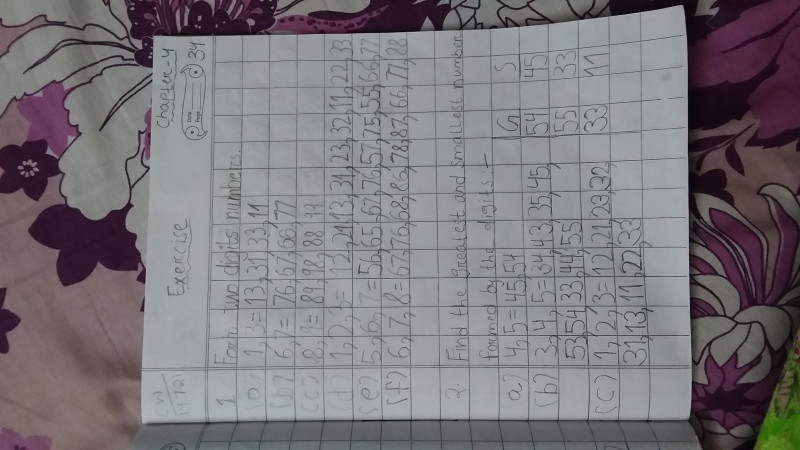 Chapter-4
Date
Page 34
CW
14/7/21
Exercise
1 Form two digits numbers.
(a) 1, 3 = 13, 31 33, 11
(b) 6, 7 = 76, 67, 66, 77
(c) 8, 9 = 89, 98, 88 99
(d) 1, 2, 3 = 12, 21, 13, 31, 23, 32, 11, 22, 33
(e) 5, 6, 7 = 56, 65, 67, 76, 57, 75, 55, 66, 77
(f) 6, 7, 8 = 67, 76, 68, 86, 78, 87, 66, 77, 88
2. Find the greatest and smallest number
formed by the digits:-
G S
a) 4, 5 = 45, 54 54 45
(b) 3, 4, 5 = 34, 43, 35, 45,
53, 54 33, 44, 55 55 33
(c) 1, 2, 3 = 12, 21, 23, 32, 33 11
31, 13, 11, 22, 33